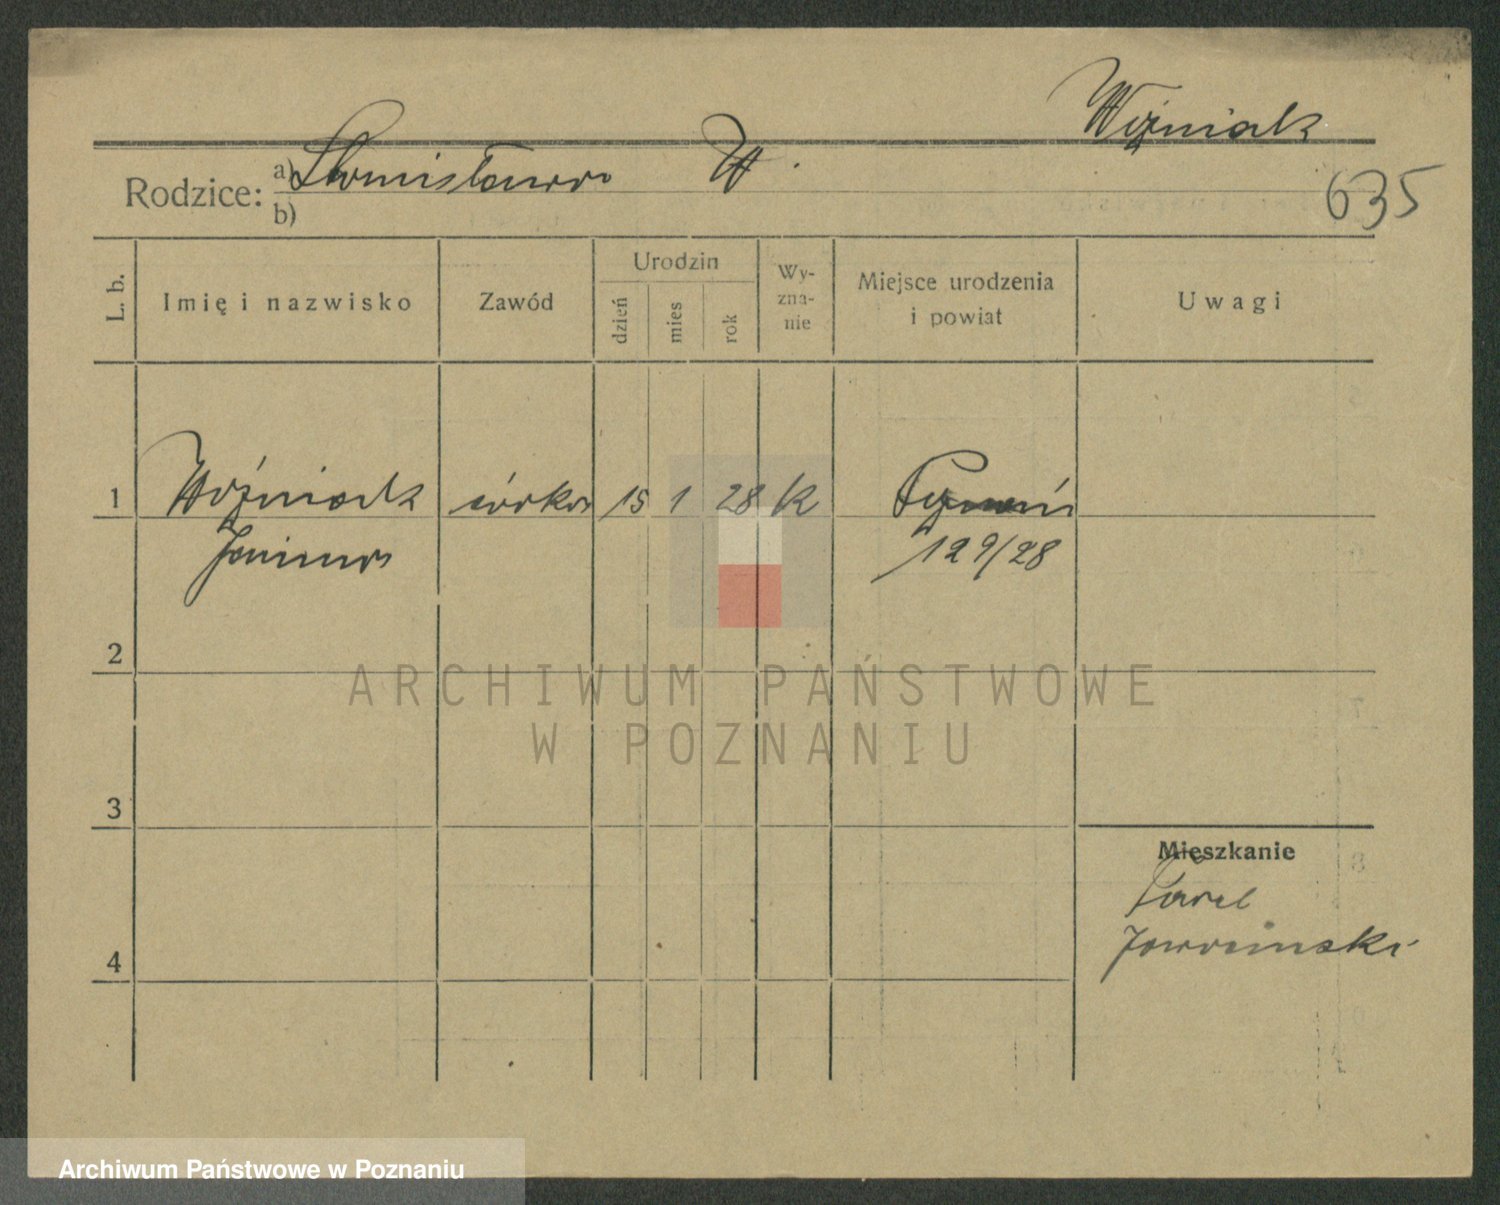 Woźniak
Rodzice: a) Stanisława W.
b)
635
L. b.
Imię i nazwisko
Zawód
Urodzin
dzień
mies
rok
Wy-
zna-
nie
Miejsce urodzenia
i powiat
Uwagi
1
Woźniak
Janina
córka
15
1
28
K
129/28
2
3
4
Mieszkanie
ARCHIWUM PAŃSTWOWE
W POZNANIU
Archiwum Państwowe w Poznaniu